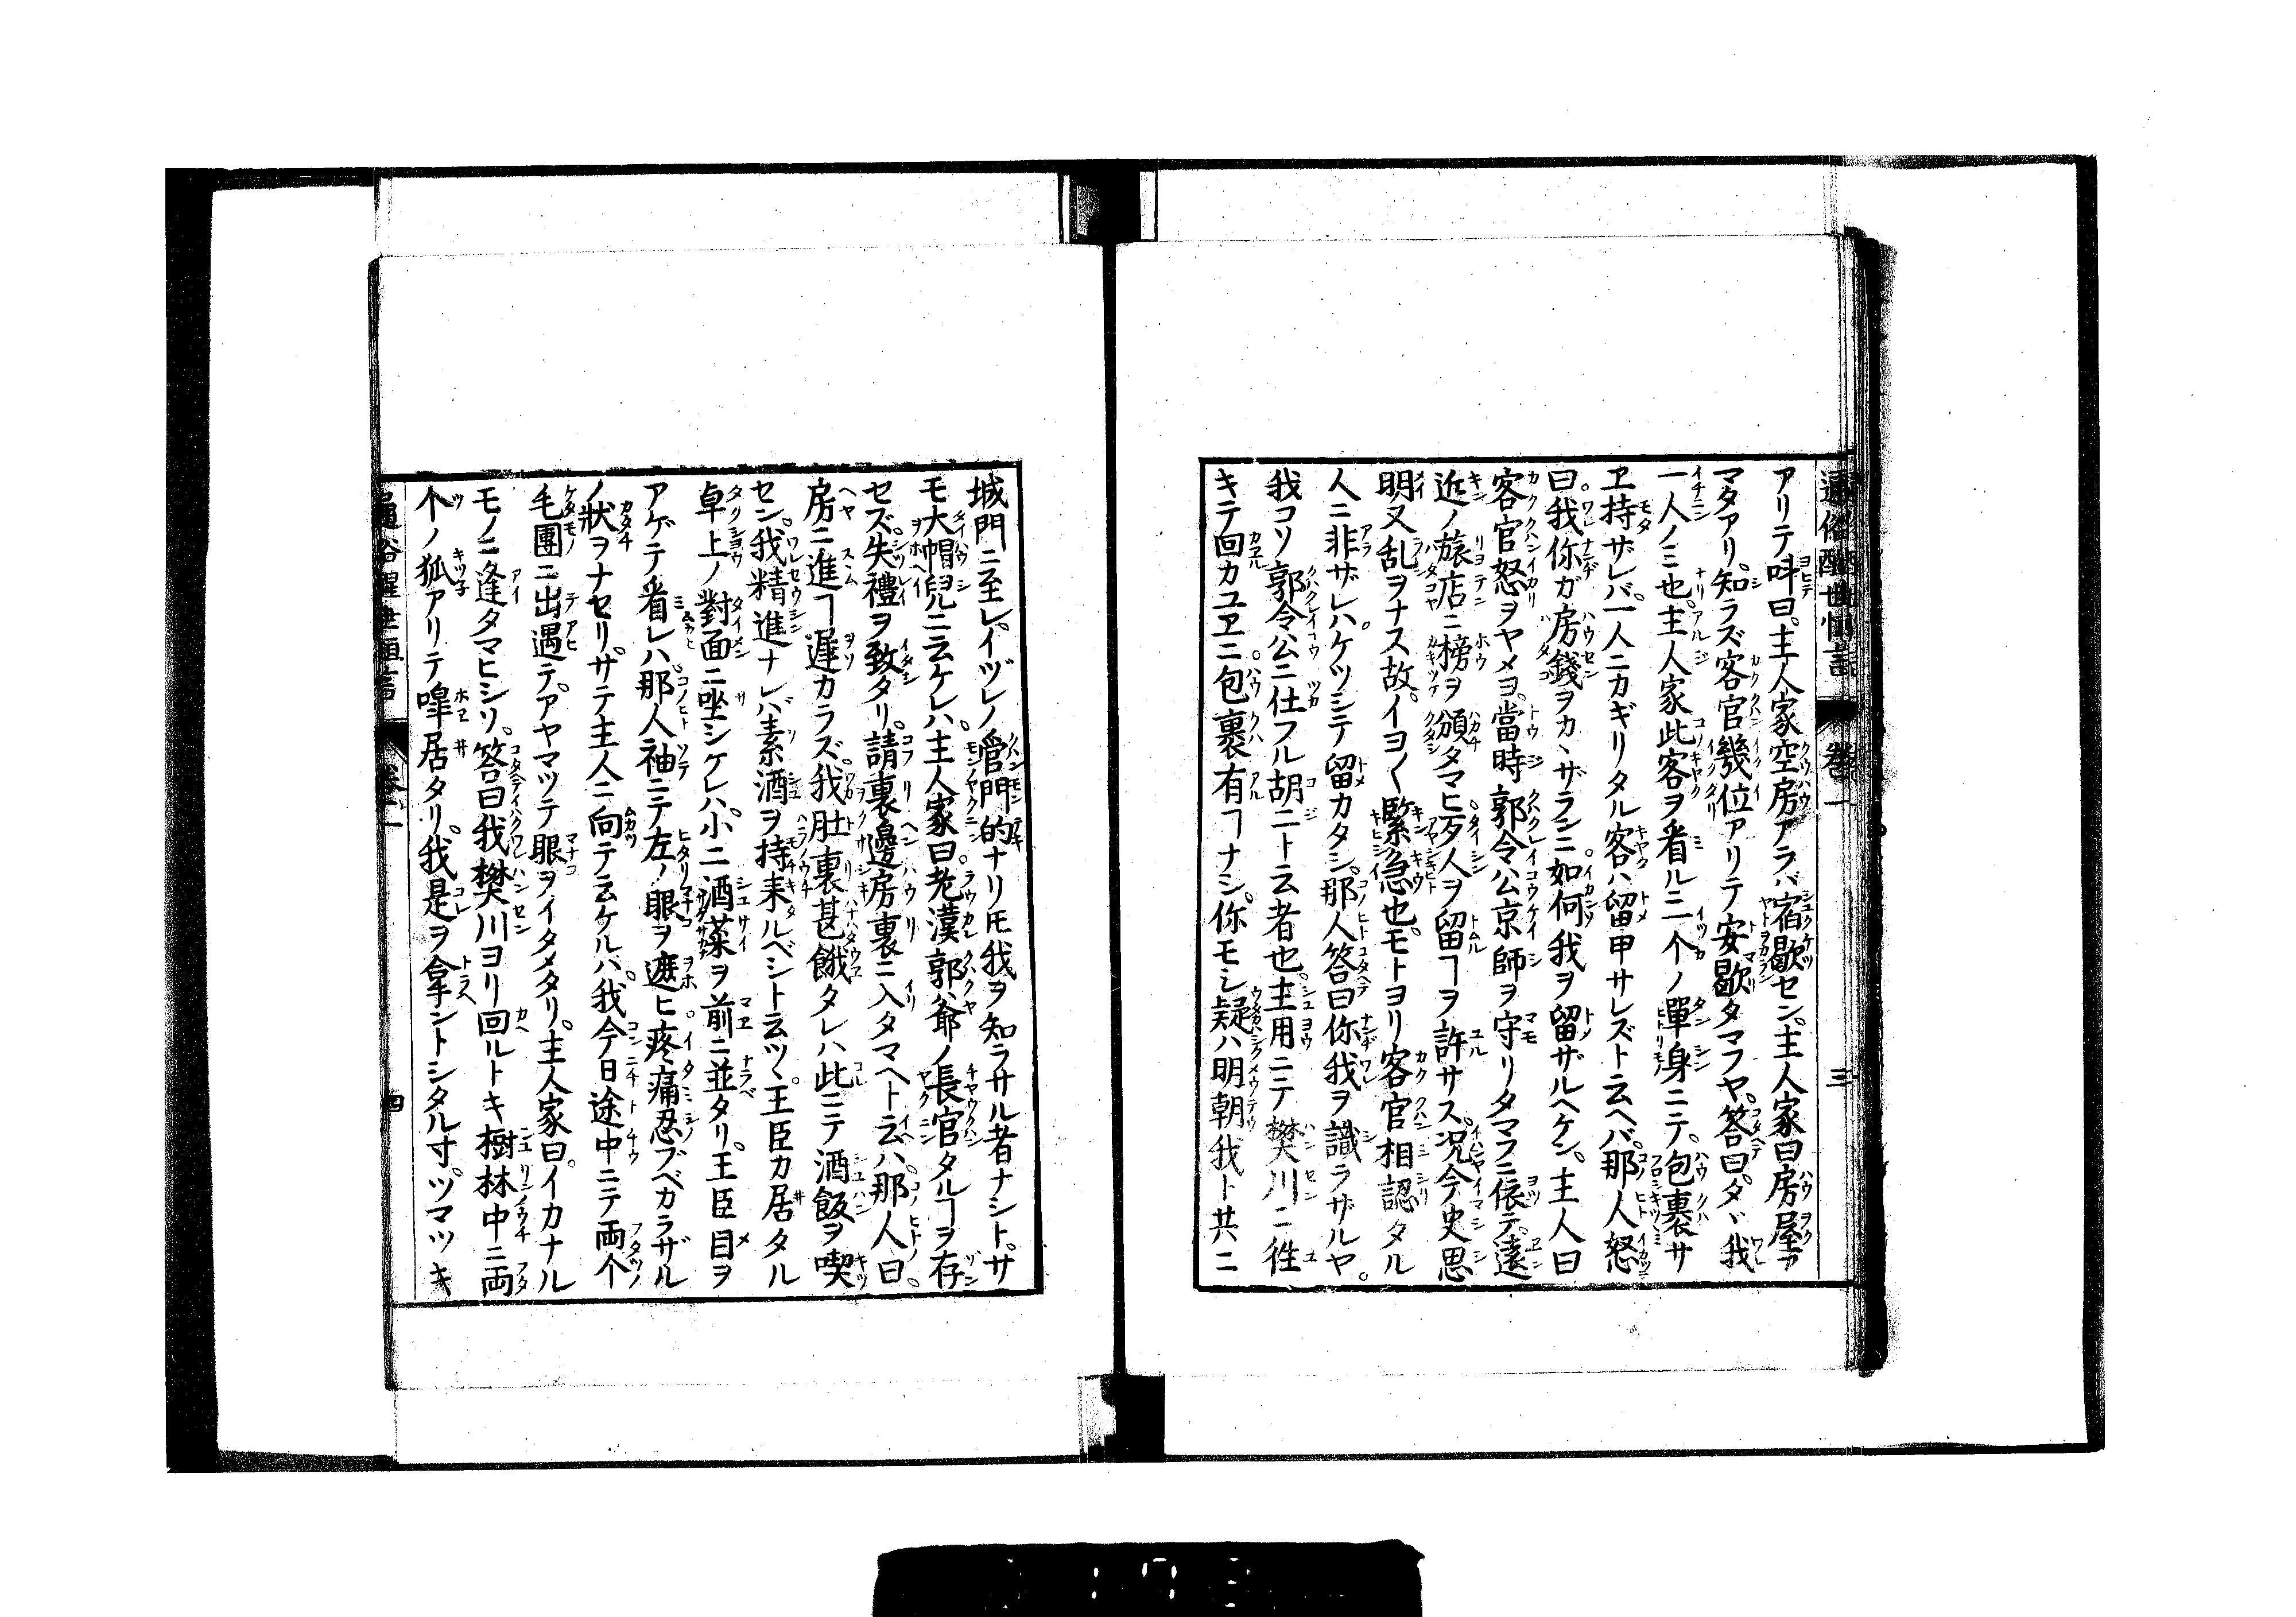 アリテ呌曰。主人家空房アラバ宿歇セン。主人家曰房屋ア
マタアリ。知ラズ客官幾位アリテ安歇タマフヤ。答曰。タヾ我
一人ノミ也。主人家此客ヲ看ルニ个ノ單身ニテ。包裹サ
ヱ持ザレバ。一人ニカギリタル客ハ留申サレズト云ヘバ。那人怒
曰。我你ガ房錢ヲカヽザランニ如何我ヲ留ザルヘケン。主人曰
客官怒ヲヤメヨ。當時郭令公京師ヲ守リタマフニ依テ。遠
近ノ旅店ニ榜ヲ頒タマヒ。歹人ヲ留ヿヲ許サス。况今史思
明又乱ヲナス故。イヨ〱緊急也。モトヨリ客官相認タル
人ニ非ザレハ。ケツシテ留カタシ。那人答曰你我ヲ識ラザルヤ。
我コソ郭令公ニ仕フル胡二ト云者也。主用ニテ樊川ニ徃
キテ回カユヱニ包裹有ヿナシ。你モシ疑ハ明朝我ト共ニ
城門ニ至レ。イヅレノ管門的ナリ𪜈我ヲ知ラサル者ナシト。サ
モ大帽兒ニ云ケレハ。主人家曰。老漢郭爺ノ長官タルヿヲ存
セズ。失禮ヲ致タリ。請裏邊房裏ニ入タマヘト云ハ。那人曰。
房ニ進ヿ遲カラズ。我肚裏甚餓タレハ此ニテ酒飯ヲ喫
セン。我精進ナレバ素酒ヲ持来ルベシト云ツヽ。王臣カ居タル
卓上ノ對面ニ坐シケレハ。小二酒菜ヲ前ニ並タリ。王臣目ヲ
アゲテ看レハ那人袖ニテ左ノ眼ヲ遮ヒ疼痛忍ブベカラザル
ノ狀ヲナセリ。サテ主人ニ向テ云ケルハ。我今日途中ニテ両个
毛團ニ出遇テ。アヤマツテ眼ヲイタメタリ。主人家曰。イカナル
モノニ逢タマヒシソ。答曰我樊川ヨリ回ルトキ樹林中ニ両
个ノ狐アリテ嘷居タリ。我是ヲ拿ントシタル寸。ツマツキ